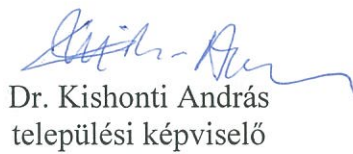 Dr. Kishonti András
települési képviselő